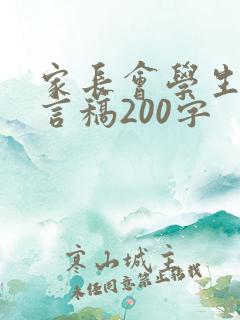 家長會學生
言稿200字
寒山城主
未經同意禁止搭載